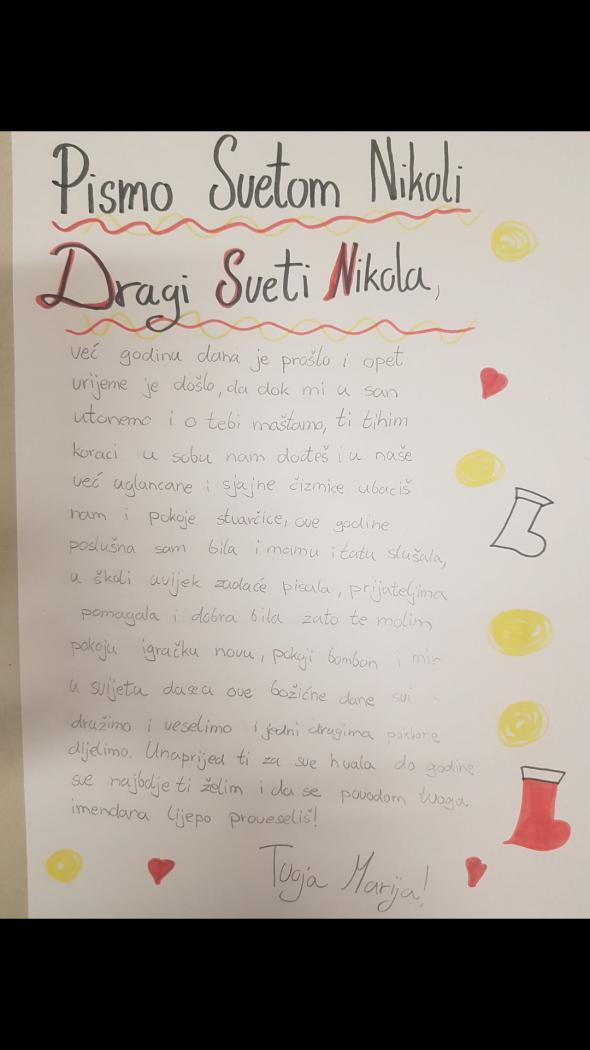 Pismo Svetom Nikoli
Dragi Sveti Nikola,
već godinu dana je prošlo i opet
vrijeme je došlo, da dok mi u san
utonemo i o tebi maštamo, ti tihim
koraci u sobu nam dođeš i u naše
već uglancane i sjajne čizmice ubaciš
nam i pokoje stvarčice, ove godine
poslušna sam bila i mamu i tatu slušala,
u školi uvijek zadaće pisala, prijateljima
pomagala i dobra bila zato te molim
pokoju igračku novu, pokoji bombon i mir
u svijetu da se u ove božićne dane svi
družimo i veselimo i jedni drugima poklone
dijelimo. Unaprijed ti za sve hvala do godine
sve najbolje ti želim i da se povodom tvoga
imendana lijepo proveseliš!
Tvoja Marija!